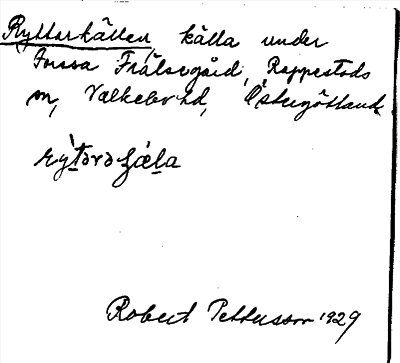 Ryttarkällan, källa under
Torssa Frälsegård, Rappestads
sn, Valkebo hd, Östergötland.
rỳtərəʂæ̀la
Robert Pettersson 1929